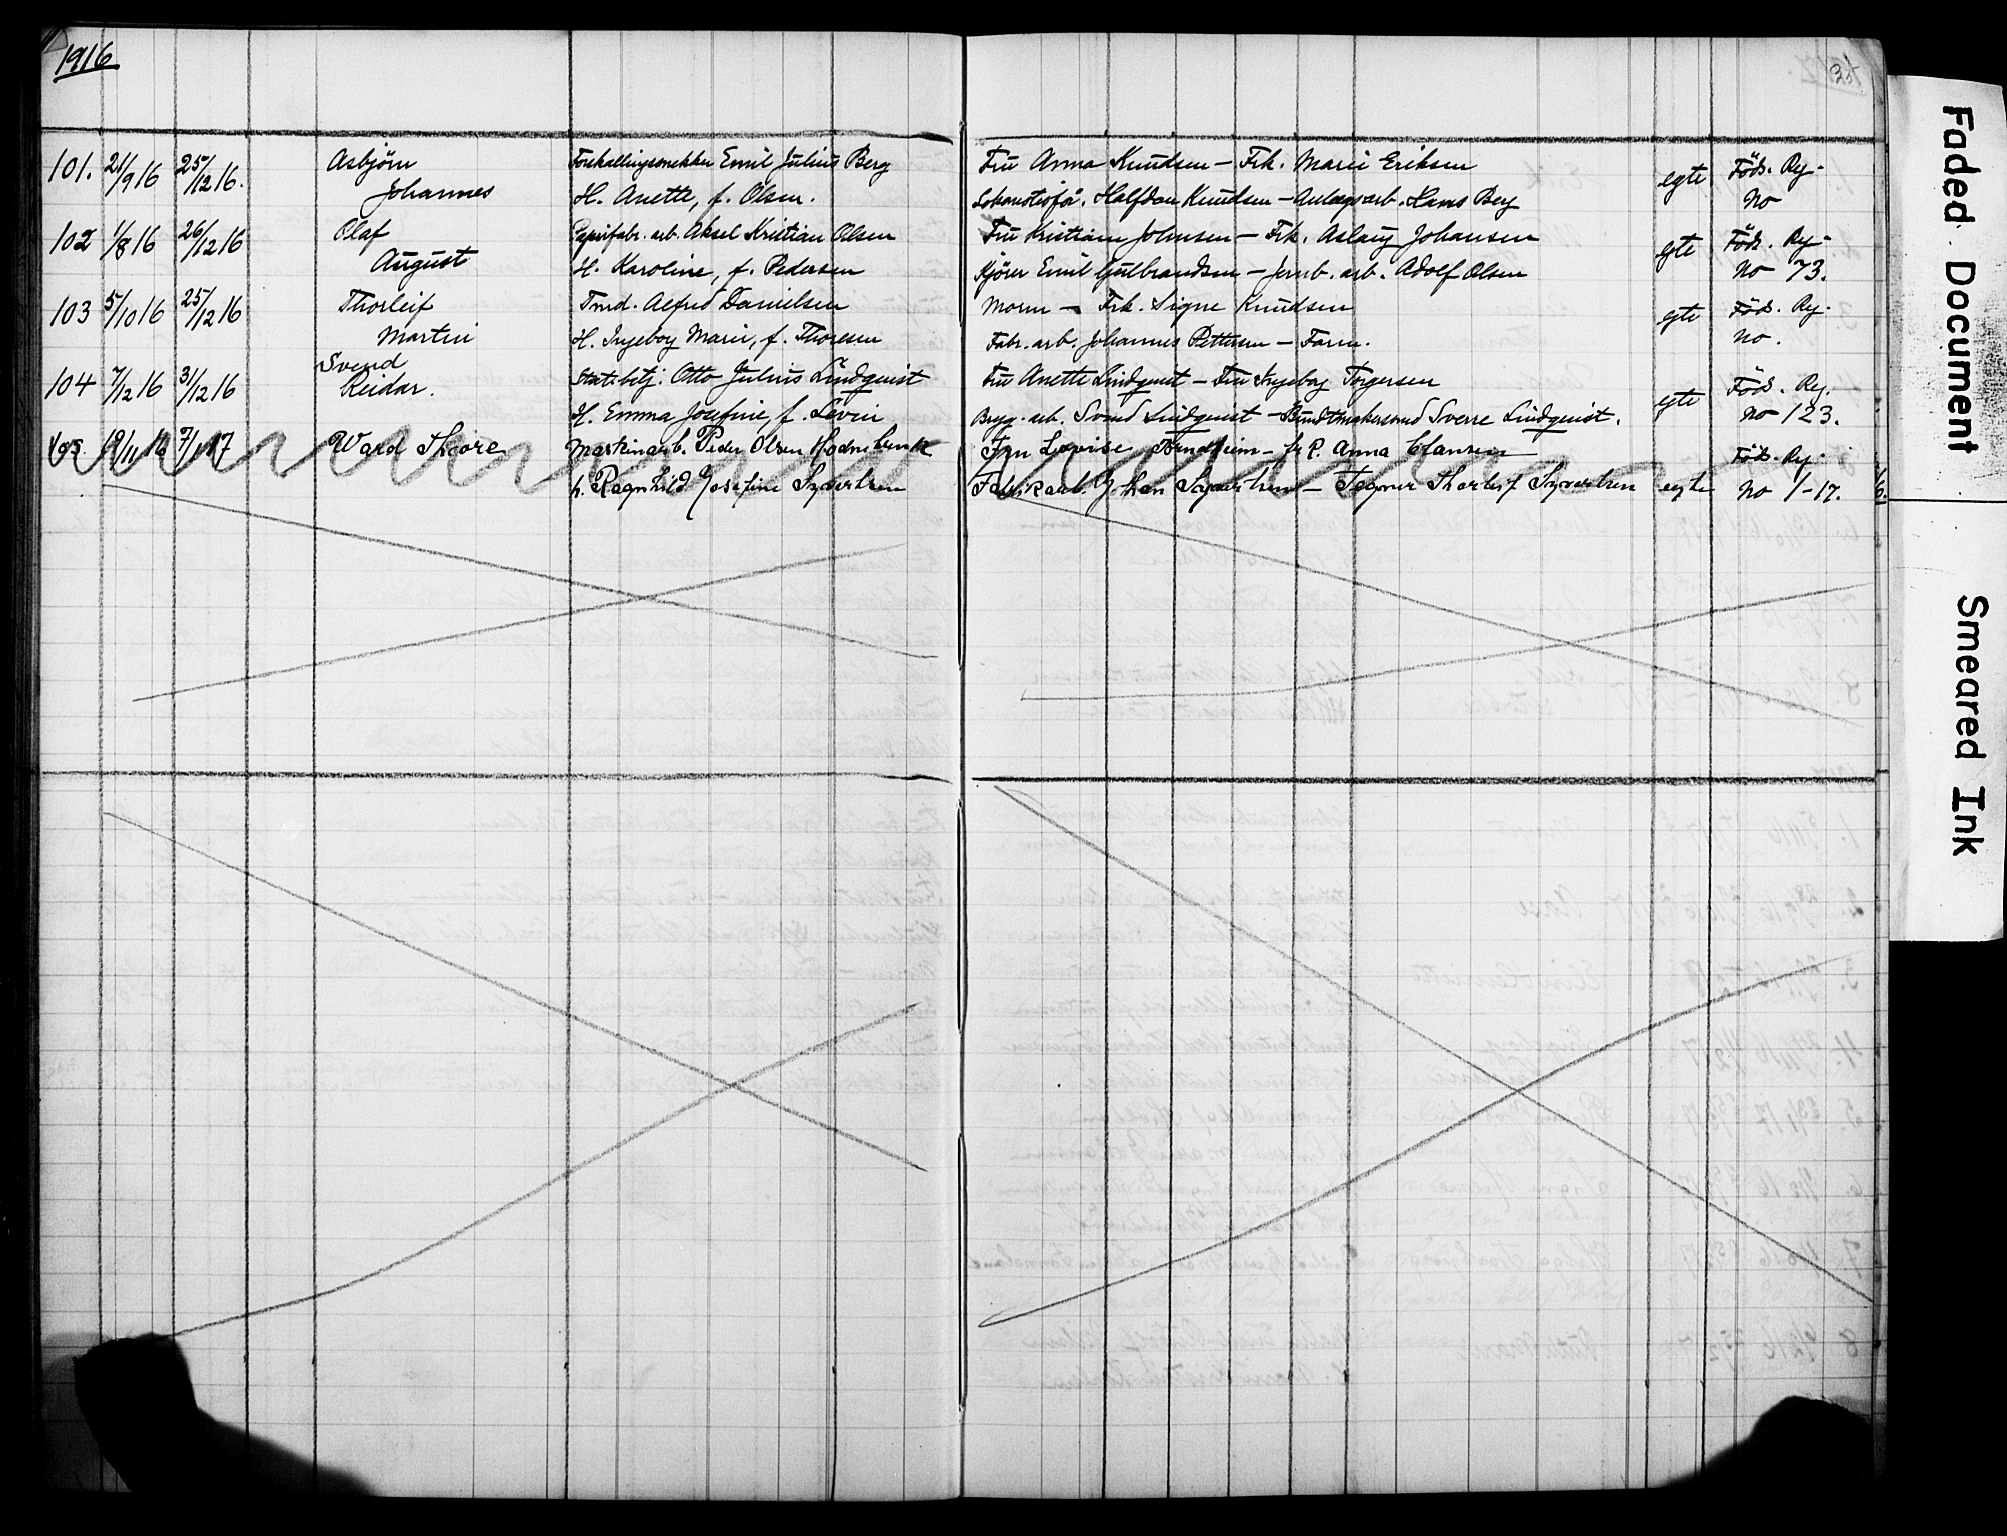 1916
101. 21/9 16 25/12 16. Asbjörn Forskallingssnekker Emil Julius Berg Fru Anna Knudsen - Frk. Marie Eriksen egte Föds. Reg.
Johannes H. Anette, f. Olsen. Lokomotivfå. Halfdan Knudsen - Anlægsarb. Hans Berg No
102 1/8 16 26/12 16 Olaf Papirfabr. arb. Aksel Kristian Olsen Fru Kristiane Johnsen - Frk. Aslaug Johansen egte Föds. Reg.
August H. Karoline, f. Pedersen Kjörer Emil Gulbrandsen - Jernb. arb. Adolf Olsen No 73.
103 5/10 16 25/12 16 Thorleif Tmd. Alfred Danielsen Moren - Frk. Signe Knudsen egte Föds. Reg.
Martin H. Ingeborg Marie, f. Thoresen Fabr. arb. Johannes Pettersen - Faren. No.
Svend
104 7/12 16 31/12 16 Reidar. Statsbetj. Otto Julius Lindquist Fru Anette Lindquist - Fru Ingeborg Torgersen egte Föds. Reg.
H. Emma Josefine, f. Levin Bryg. arb. Svend Lindquist - Bundtmakersvend Sverre Lindquist. No 123.
105 19/11 16 7/1 17 Ward Thore Maskinarb. Peder Olsen Fru Lovise - frk. Anna Clausen Föds. Reg.
h. Ragnhild Josefine Syvertsen Fabrikarb. Johan Syvertsen - Thorleif Syvertsen egte No 1-17.
Faded Document
Smeared Ink